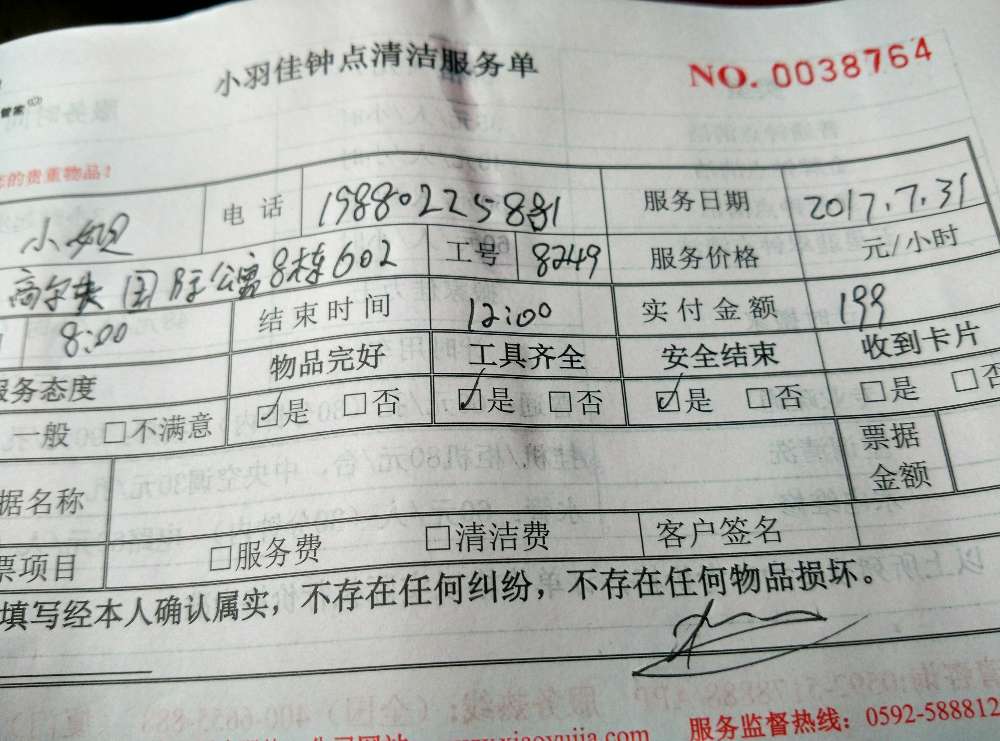 小羽佳钟点清洁服务单
NO. 0038764
管家
的贵重物品！
电话 服务日期 2017.7.31
高尔夫国际公寓8栋602 工号 8249 服务价格 元/小时
8:00 结束时间 12:00 实付金额 199
服务态度 物品完好 工具齐全 安全结束 收到卡片
般 □不满意 ☑是 □否 ☑是 □否 ☑是 □否 □是 □否
据名称 票据金额
票项目 □服务费 □清洁费 客户签名
填写经本人确认属实，不存在任何纠纷，不存在任何物品损坏。
www.xiaoyujia.com 服务监督热线：0592-588812